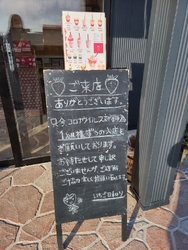 ご来店
ありがとうございます。
只今コロナウイルス対策の為
1組様ずつの入店を
お願いしております。
お待たせして申し訳
ございませんが、ご理解
ご協力宜しくお願い致します。
いちご日和り